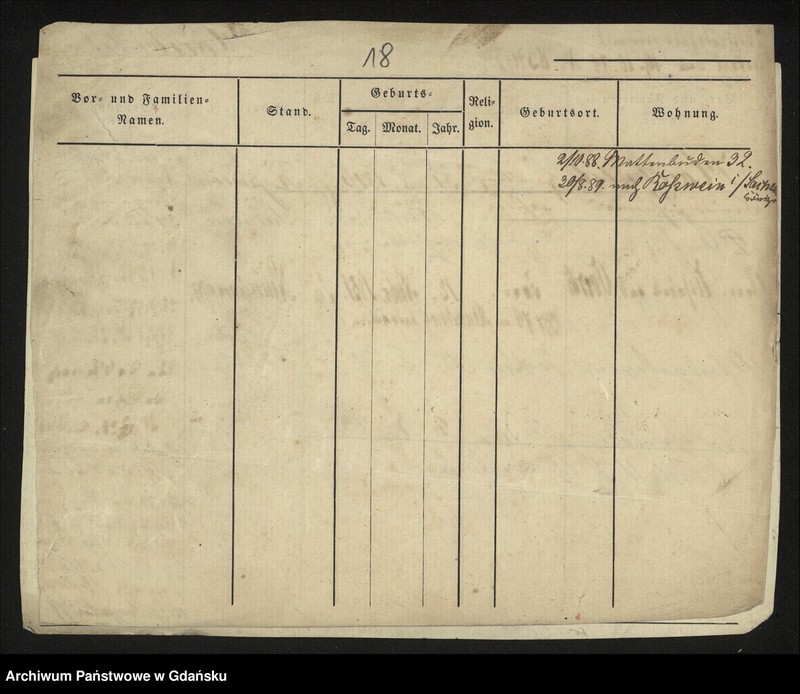 18
Vor- und Familien-
Namen.
Stand.
Geburts-
Tag. Monat. Jahr.
Reli-
gion.
Geburtsort.
Wohnung.
2/10.88. Mattenbuden 32.
20/8.89. nach Roßwein i/
Archiwum Państwowe w Gdańsku